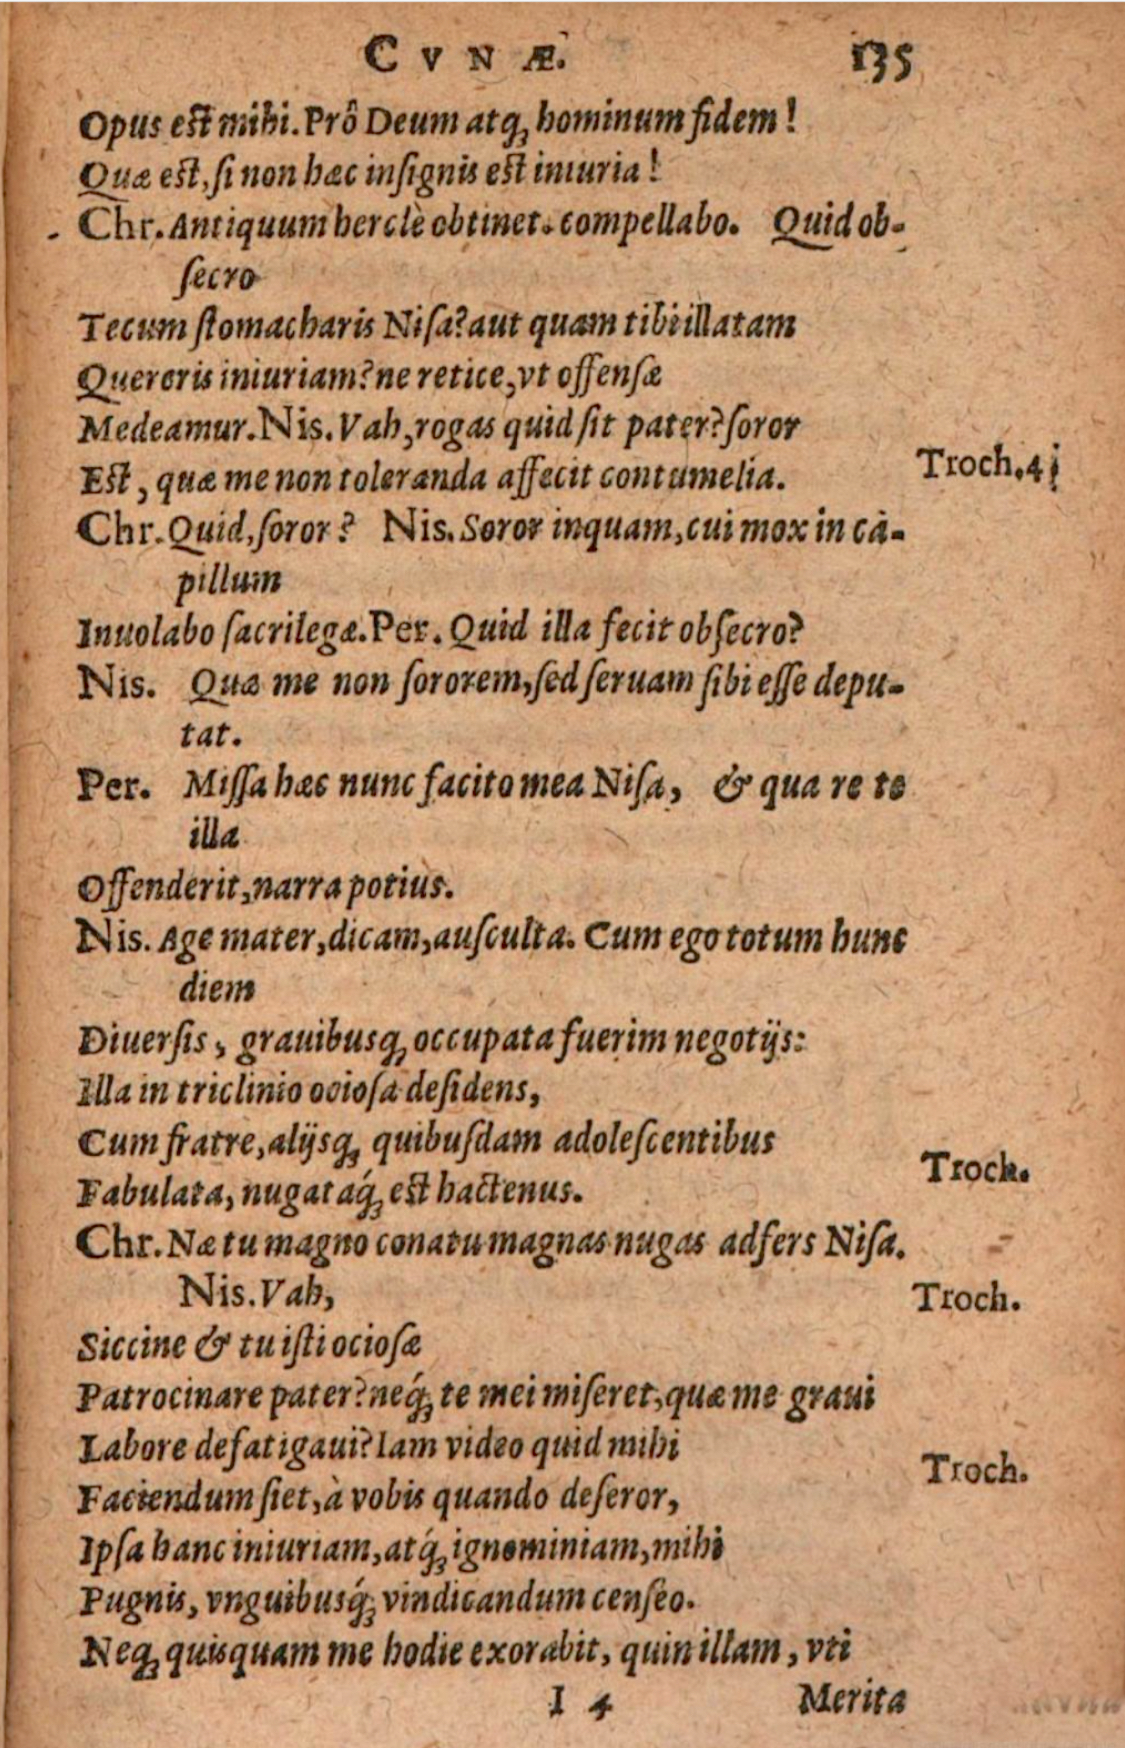 CVNÆ. 135
Opus est mihi. Prô Deum atq; hominum fidem!
Quæ est, si non hæc insignis est iniuria!
Chr. Antiquum herclè obtinet. compellabo. Quid ob-
secro
Tecum stomacharis Nisa? aut quam tibi illatam
Quereris iniuriam? ne retice, vt offensæ
Medeamur. Nis. Vah, rogas quid sit pater? soror
Est, quæ me non toleranda affecit contumelia. Troch. 4
Chr. Quid, soror? Nis. Soror inquam, cui mox in ca-
pillum
Inuolabo sacrilegæ. Per. Quid illa fecit obsecro?
Nis. Quæ me non sororem, sed seruam sibi esse depu-
tat.
Per. Missa hæc nunc facito mea Nisa, & qua re te
illa
Offenderit, narra potiùs.
Nis. Age mater, dicam, ausculta. Cum ego totum hunc
diem
Diuersis, grauibusq; occupata fuerim negotijs:
Illa in triclinio ociosa desidens,
Cum fratre, alijsq; quibusdam adolescentibus
Fabulata, nugataq́; est hactenus. Troch.
Chr. Næ tu magno conatu magnas nugas adfers Nisa.
Nis. Vah, Troch.
Siccine & tu isti ociosæ
Patrocinare pater? neq́; te mei miseret, quæ me graui
Labore defatigaui? Iam video quid mihi
Faciendum siet, à vobis quando deseror, Troch.
Ipsa hanc iniuriam, atq́; ignominiam, mihi
Pugnis, vnguibusq́; vindicandum censeo.
Neq; quisquam me hodie exorabit, quin illam, vti
I 4 Merita